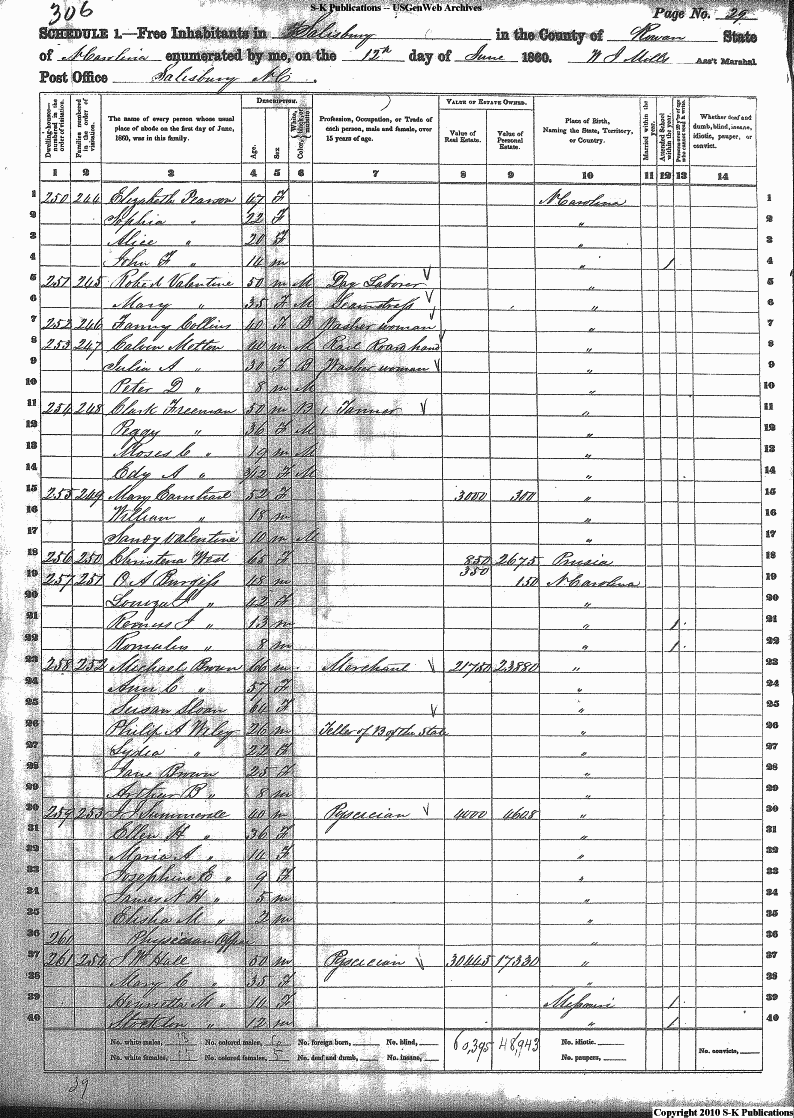 S-K Publications -- USGenWeb Archives
306
Page No. 29
SCHEDULE 1.—Free Inhabitants in Salisbury in the County of Rowan State
of N Carolina enumerated by me, on the 12th day of June 1860. Ass't Marshal
Post Office Salisbury N C.
Dwelling-houses—numbered in the order of visitation. Families numbered in the order of visitation. The name of every person whose usual place of abode on the first day of June, 1860, was in this family. DESCRIPTION. Age. Sex. Color, White, black, or mulatto. Profession, Occupation, or Trade of each person, male and female, over 15 years of age. VALUE OF ESTATE OWNED. Value of Real Estate. Value of Personal Estate. Place of Birth, Naming the State, Territory, or Country. Married within the year. Attended School within the year. Persons over 20 y'rs of age who cannot read & write. Whether deaf and dumb, blind, insane, idiotic, pauper, or convict.
1 2 3 4 5 6 7 8 9 10 11 12 13 14
1 250 244 Elizabeth Pearson 47 F N Carolina 1
2 Sophia " 22 F " 2
3 Alice " 20 F " 3
4 John F " 14 m " / 4
5 251 245 Robert Valentine 50 m M Day Laborer " 5
6 Mary " 35 F M Seamstress " 6
7 252 246 Fanny Collins 40 F B Washer woman " 7
8 253 247 Calvin 40 m M Rail Road hand " 8
9 Julia A " 30 F B Washer woman " 9
10 Peter D " 8 m M " 10
11 254 248 Clark Freeman 50 m B Tanner " 11
12 Peggy " 36 F M " 12
13 Moses C " 19 m M " 13
14 Edy A " 3/12 F M " 14
15 255 249 Mary Earnhart 52 F 3000 300 " 15
16 William " 18 m " 16
17 Sandy Valentine 10 m M " 17
18 256 250 Christena West 65 F 850 2675 Prusia 18
19 257 251 O A Burgiss 48 m 350 150 N Carolina 19
20 Louiza J " 42 F " 20
21 Remus J " 13 m " / 21
22 Romulus " 8 m " / 22
23 258 252 Michael Brown 66 m Merchant 21750 23880 " 23
24 Ann C " 57 F " 24
25 Susan Sloan 60 F " 25
26 Philip A Wiley 26 m Teller of B of the State " 26
27 Lydia " 22 F " 27
28 Jane Brown 25 F " 28
29 Arthur B " 8 m " 29
30 259 253 J J Summerell 40 m Pyscician 4000 4608 " 30
31 Ellen H " 36 F " 31
32 Maria A " 14 F " 32
33 Josephine E " 9 F " 33
34 James N H " 5 m " 34
35 Elisha M " 2 m " 35
36 260 Physician Office " 36
37 261 254 J W Hall 50 m Pyscician 30445 17330 " 37
38 Mary C " 35 F " 38
39 Henrietta M " 14 F Missouri / 39
40 Stockton " 12 m " / 40
No. white males, No. colored males, No. foreign born, No. blind, 60,395 48,943 No. idiotic, No. convicts,
No. white females, No. colored females, 5 No. deaf and dumb, No. insane, No. paupers,
29
Copyright 2010 S-K Publications